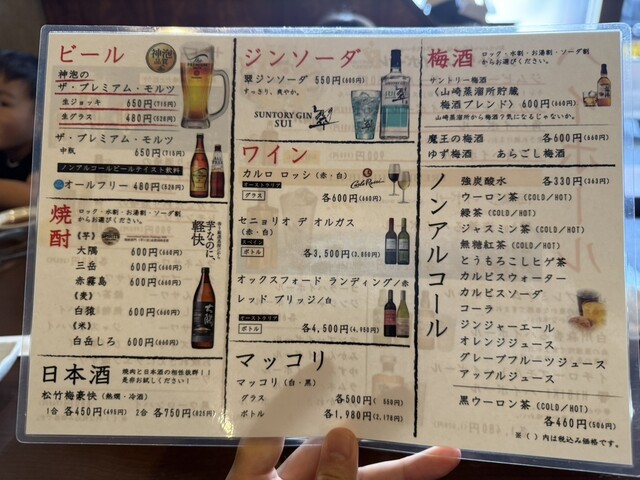 ビール
神泡
神泡の
ザ・プレミアム・モルツ
生ジョッキ 650円(715円)
生グラス 480円(528円)
ザ・プレミアム・モルツ
中瓶 650円(715円)
ノンアルコールビールテイスト飲料
オールフリー 480円(528円)
焼酎
ロック・水割・お湯割・ソーダ割
からお選びください。
芋なのに、
軽快
(芋)
大隅 600円(660円)
三岳 600円(660円)
赤霧島 600円(660円)
(麦)
白猿 600円(660円)
(米)
白岳しろ 600円(660円)
日本酒
焼肉と日本酒の相性抜群!!
是非お試しください!
松竹梅豪快(熱燗・冷酒)
1合 各450円(495円) 2合 各750円(825円)
ジンソーダ
翠ジンソーダ 550円(605円)
すっきり、爽やか。
SUNTORY GIN
SUI 翠
ワイン
カルロ ロッシ(赤・白)
Carlo Rossi
オーストラリア
グラス 各600円(660円)
セニョリオ デ オルガス
(赤・白)
スペイン
ボトル 各3,500円(3,850円)
オックスフォード ランディング/赤
レッド ブリッジ/白
オーストラリア
ボトル 各4,500円(4,950円)
マッコリ
マッコリ(白・黒)
グラス 各500円(550円)
ボトル 各1,980円(2,178円)
梅酒
ロック・水割・お湯割・ソーダ割
からお選びください。
サントリー梅酒
〈山崎蒸溜所貯蔵
梅酒ブレンド〉 600円(660円)
山崎蒸溜所から梅酒?気になるじゃないか。
魔王の梅酒 各600円(660円)
ゆず梅酒 あらごし梅酒
ノンアルコール
強炭酸水 各330円(363円)
ウーロン茶(COLD/HOT)
緑茶(COLD/HOT)
ジャスミン茶(COLD/HOT)
無糖紅茶(COLD/HOT)
とうもろこしヒゲ茶
カルピスウォーター
カルピスソーダ
コーラ
ジンジャーエール
オレンジジュース
グレープフルーツジュース
アップルジュース
黒ウーロン茶(COLD/HOT)
各460円(506円)
※( )内は税込み価格です。